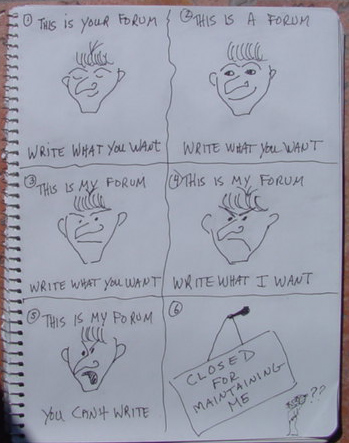 ① THIS IS YOUR FORUM
WRITE WHAT YOU WANT
② THIS IS A FORUM
WRITE WHAT YOU WANT
③ THIS IS MY FORUM
WRITE WHAT YOU WANT
④ THIS IS MY FORUM
WRITE WHAT I WANT
⑤ THIS IS MY FORUM
YOU CAN'T WRITE
⑥
CLOSED
FOR
MAINTAINING
ME
??